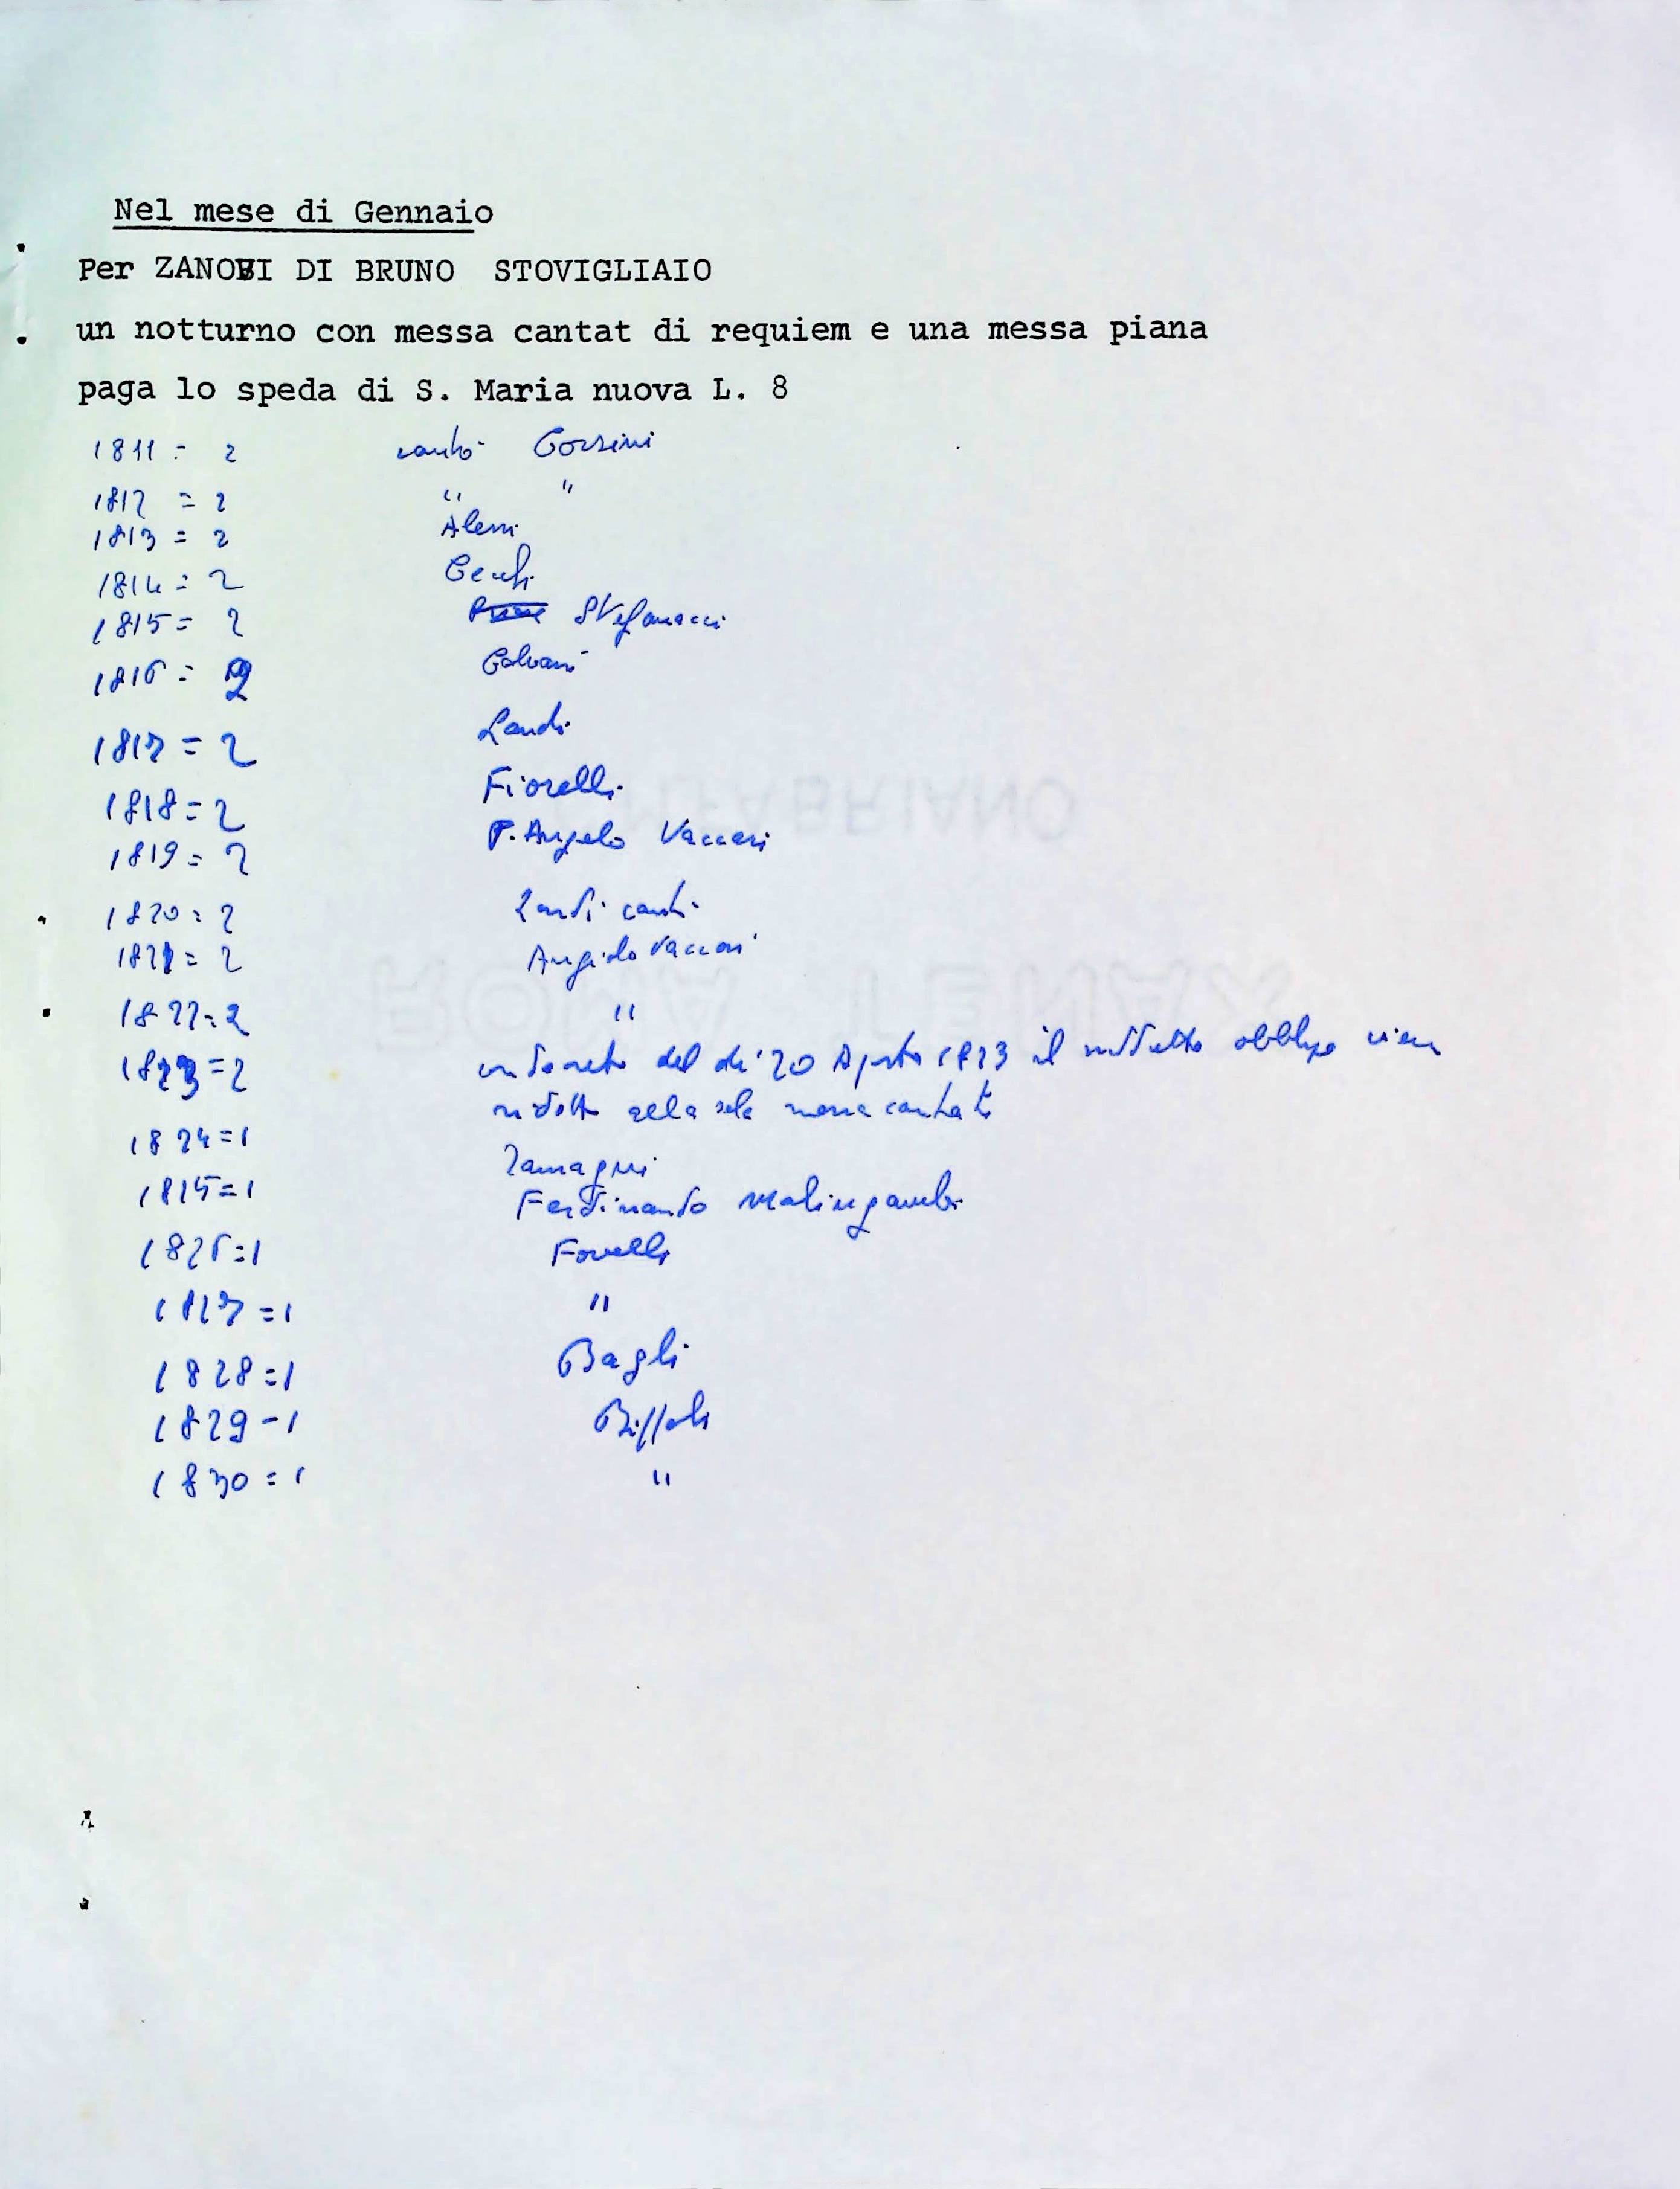 Nel mese di Gennaio
Per ZANOBI DI BRUNO STOVIGLIAIO
un notturno con messa cantat di requiem e una messa piana
paga lo speda di S. Maria nuova L. 8
1811 = 2 cantò Corsini
1812 = 2 " "
1813 = 2 Alemi
1814 = 2 Cecchi
1815 = 2 Stefanacci
1816 = 2 Galvani
1817 = 2 Landi
1818 = 2 Fiorelli
1819 = 2 P. Angelo Vaccari
1820 = 2 Landi cantò
1821 = 2 Angiolo Vaccari
1822 = 2 "
1823 = 2 del dì 20 Agosto 1823 il suddetto obbligo vien
ridotto alla sola messa cantata
1824 = 1 Zamagni
1825 = 1 Ferdinando Malingambi
1826 = 1 Fovelli
1827 = 1 "
1828 = 1 Bagli
1829 - 1 Biffoli
1830 = 1 "
FABRIANO
ROMA TENAX